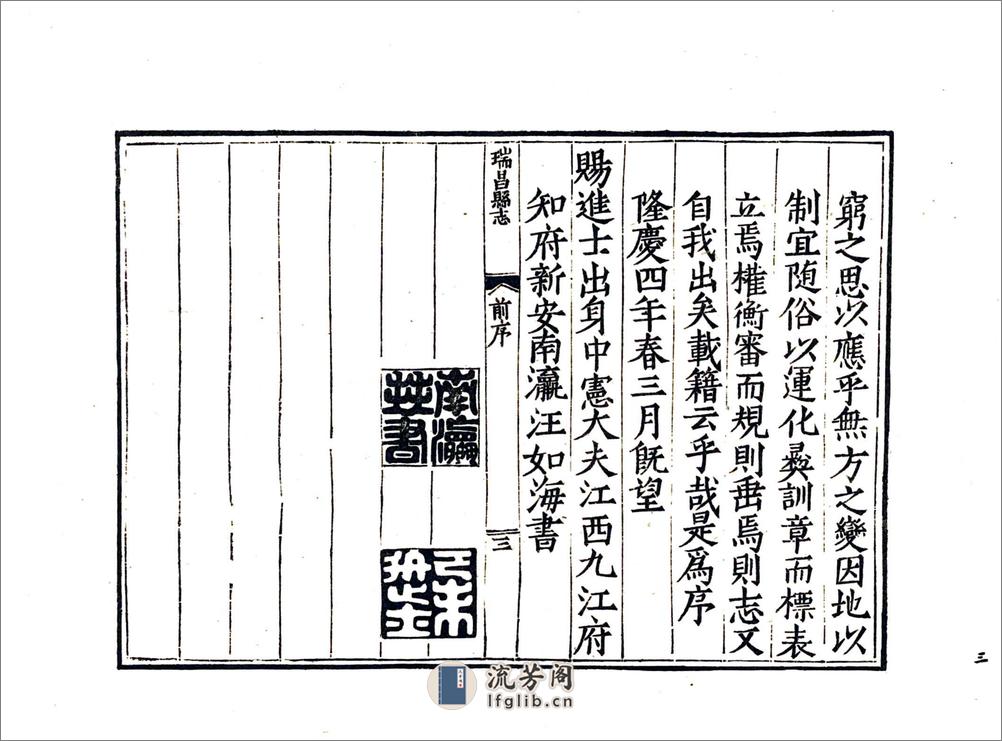 窮之思以應乎無方之變因地以
制宜随俗以運化彜訓章而標表
立焉權衡審而規則埀焉則志又
自我出矣載籍云乎哉是爲序
隆慶四年春三月旣望
賜進士出身中憲大夫江西九江府
知府新安南瀛汪如海書
瑞昌縣志
前序
三
南瀛
己未
進士
三
流芳阁
lfglib.cn